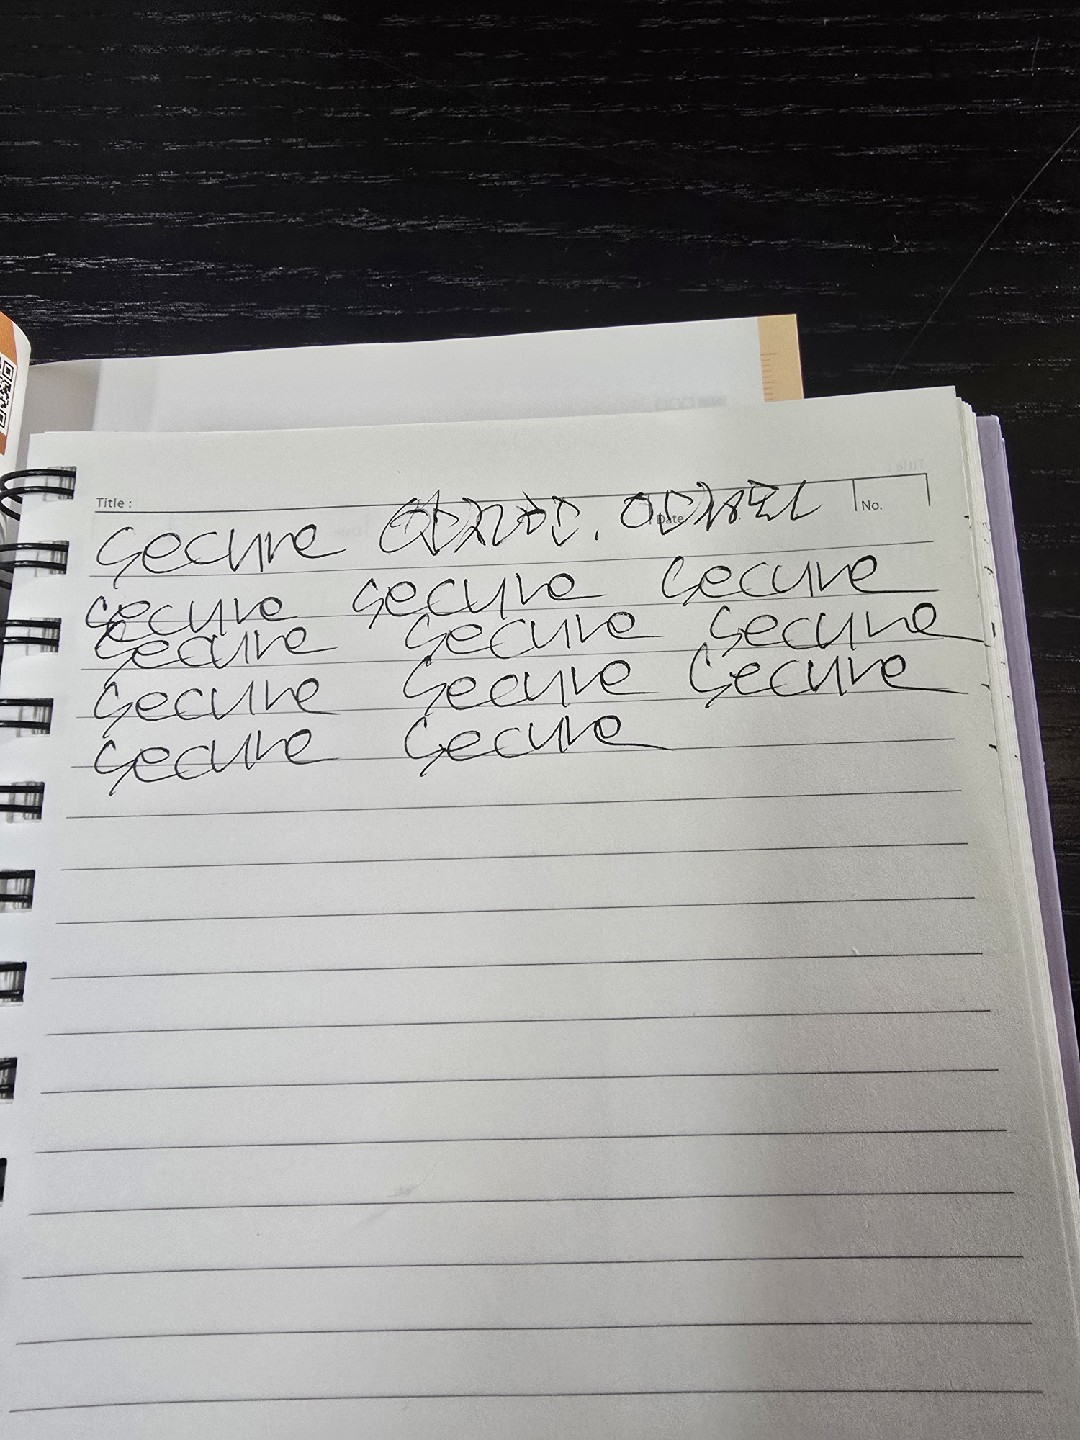 Title :
Date
No.
secure 안전한. 안전된
secure secure secure
secure secure secure
secure secure secure
secure secure